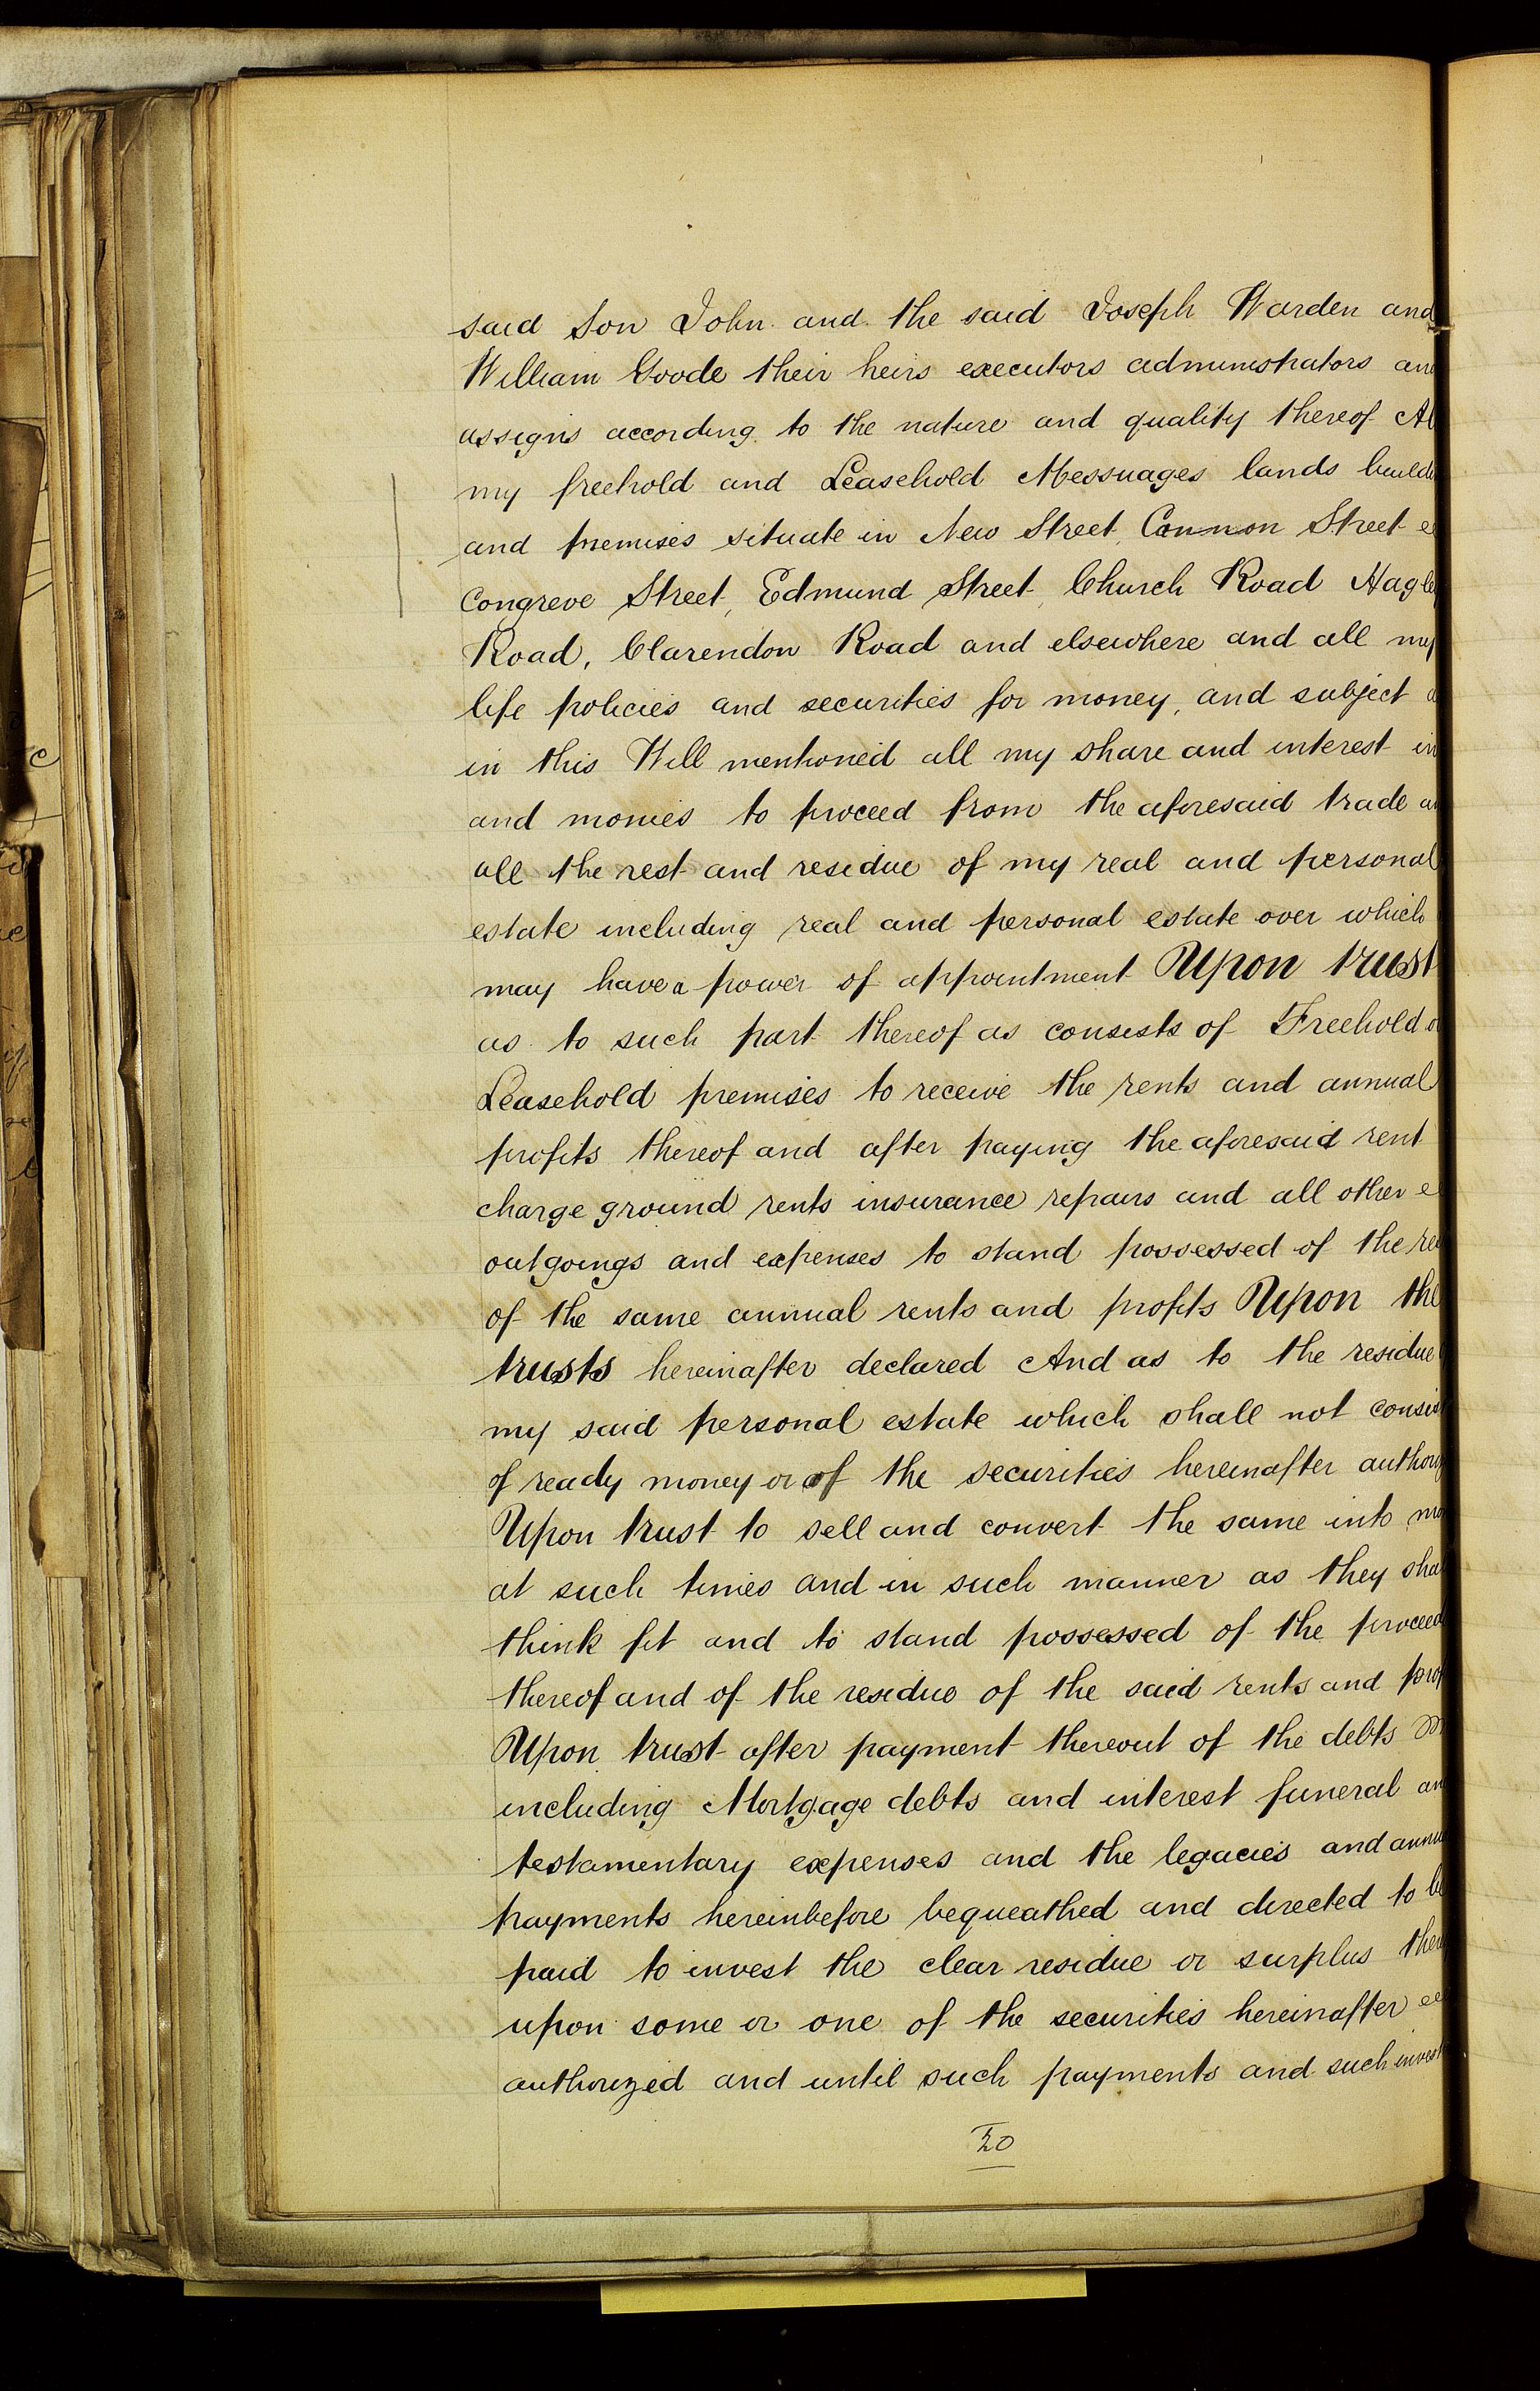 said Son John and the said Joseph Warden and
William Goode their heirs executors administrators an
assigns according to the nature and quality thereof Al
my freehold and Leasehold Messuages lands build
and premises situate in New Street, Cannon Street
Congreve Street, Edmund Street, Church Road Hagle
Road, Clarendon Road and elsewhere and all my
life policies and securities for money, and subject a
in this Will mentioned all my share and interest in
and monies to proceed from the aforesaid trade a
all the rest and residue of my real and personal
estate including real and personal estate over which
may have a power of appointment Upon trust
as to such part thereof as consists of Freehold o
Leasehold premises to receive the rents and annual
profits thereof and after paying the aforesaid rent
charge ground rents insurance repairs and all other
outgoings and expenses to stand possessed of the re
of the same annual rents and profits Upon the
trusts hereinafter declared And as to the residue
my said personal estate which shall not consist
of ready money or of the securities hereinafter author
Upon trust to sell and convert the same into mo
at such times and in such manner as they shal
think fit and to stand possessed of the proceed
thereof and of the residue of the said rents and prof
Upon trust after payment thereout of the debts
including Mortgage debts and interest funeral an
testamentary expenses and the legacies and annu
payments hereinbefore bequeathed and directed to be
paid to invest the clear residue or surplus there
upon some or one of the securities hereinafter
authorized and until such payments and such invest
20